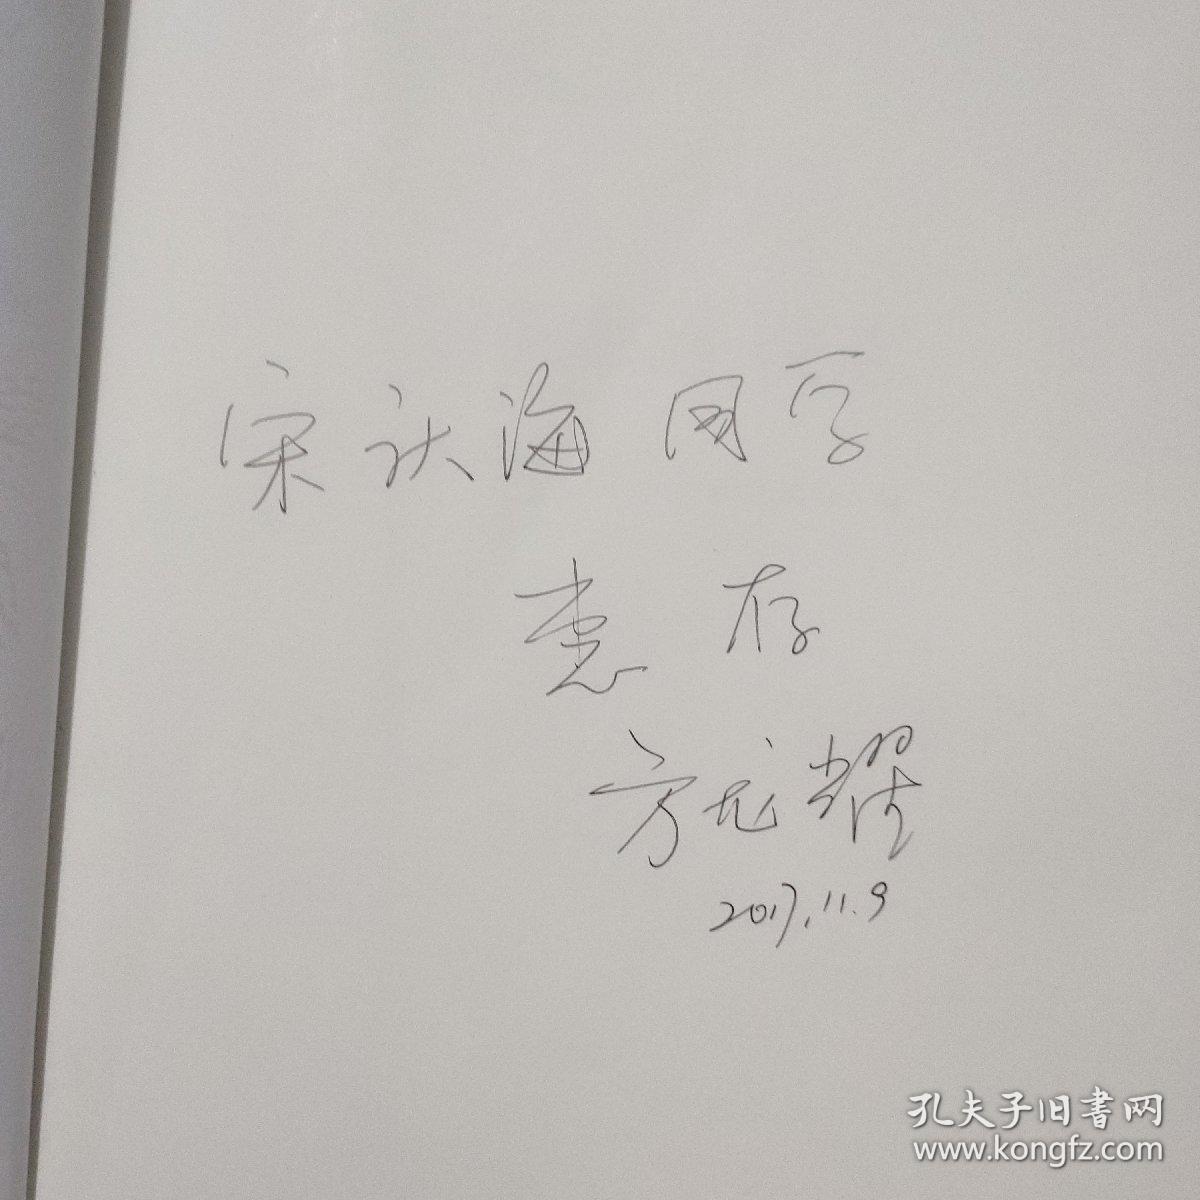 宋认海同学
惠存
方尤耀
2017.11.9
孔夫子旧書网
www.kongfz.com